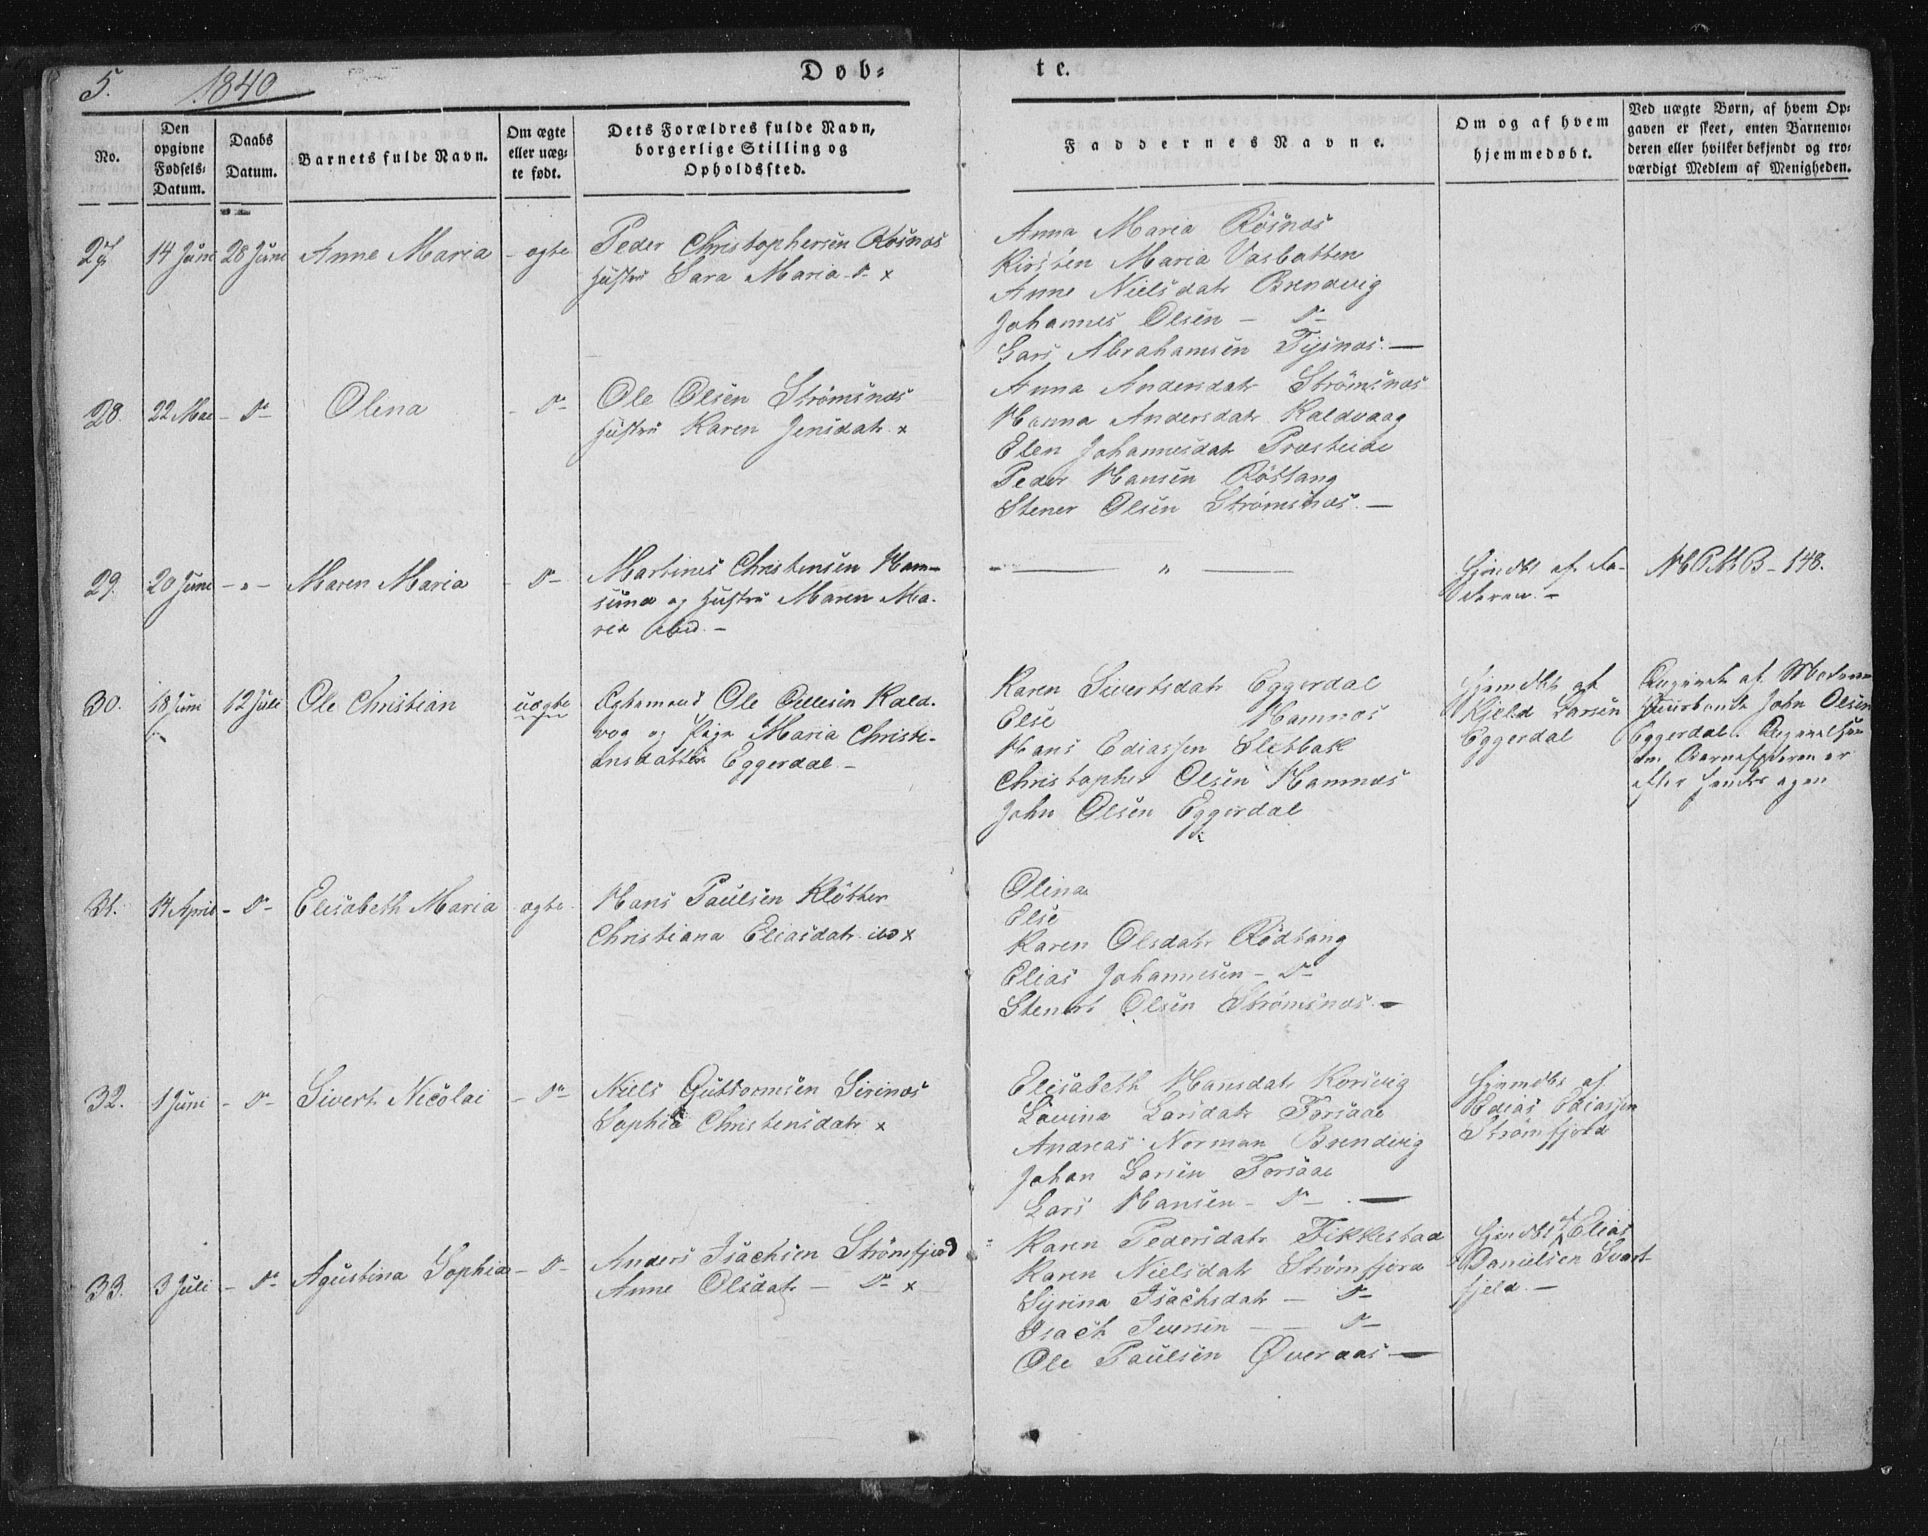 5. 1840 Døb- te.
No.
Den opgivne Fødsels-Datum.
Daabs Datum.
Barnets fulde Navn.
Om ægte eller uægte født.
Dets Forældres fulde Navn, borgerlige Stilling og Opholdssted.
Faddernes Navne.
Om og af hvem hjemmedøbt.
Ved uægte Børn, af hvem Opgaven er skeet, enten Barnemoderen eller hvilker bekjendt og troværdigt Medlem af Menigheden.
27. 14 Juni 28 Juni Anne Maria - ægte
Peder Christophersen Røsnæs
Hustru Sara Maria do x
Anna Maria Røsnæs
Kirsten Maria Vasbotten
Anne Nielsdatr Brendvig
Johannes Olsen - do -
Lars Abrahamsen Tysnæs. —
28. 22 Mai - do - Olena - do -
Ole Olsen Strømsnæs
Hustru Karen Jensdatr. x
Anna Andersdatr Strømsnæs
Hanna Andersdatr Kaldvaag
Elen Johannesdatr Præsteide
Peder Hansen Røstang
Stener Olsen Strømsnæs. —
29. 20 Juni - " - Maren Maria - do -
Martines Christensen Ham-
sund og Hustru Maren Ma-
ria ibid. -
— " —
Hjemdbt af Fa-
deren. -
148.
30. 18 Juni 12 Juli Ole Christian uægte
Ægtemand Ole Ollesen Kald-
vog og Pige Maria Christi-
ansdatter Eggerdal -
Karen Sivertsdatr Eggerdal
Else Hamnæs
Hans Ediassen Sletbak
Christopher Olsen Hamnæs
John Olsen Eggerdal
Hjemdbt af
Kjeld Larsen
Eggerdal
Angivet af Moderen
John Olsen
Eggerdal. Angivelsen
om Barnefaderen er
efter hendes egen
31. 14 April - do - Elisabeth Maria ægte
Hans Paulsen Kløther
Christiana Eliasdatr ibd x
Olina
Else
Karen Olsdatr Rødtang
Elias Johannesen - do -
Stenert Olsen Strømsnæs. —
32. 1 Juni - do - Sivert Nicolai - do -
Niels Guttormsen Sirinæs
Sophia Christensdatr x
Elisabeth Hansdatr Korsvig
Lovina Larsdatr Forsaae
Andreas Norman Brendvig
Johan Larsen Forsaae
Lars Hansen - do - —
Hjemdbt af
Edias Ediassen
Strømfjord
33. 3 Juli - do - Agustina Sophia - do -
Anders Isachsen Strømfjord
Anne Olsdatr - do x
Karen Pedersdatr Fikkestad
Karen Nielsdatr Strømfjord
Syrina Isachsdatr - do -
Isach Iversen - do -
Ole Paulsen Øveraas —
Hjemdbt af Elias
Danielsen Svart-
fjeld. -